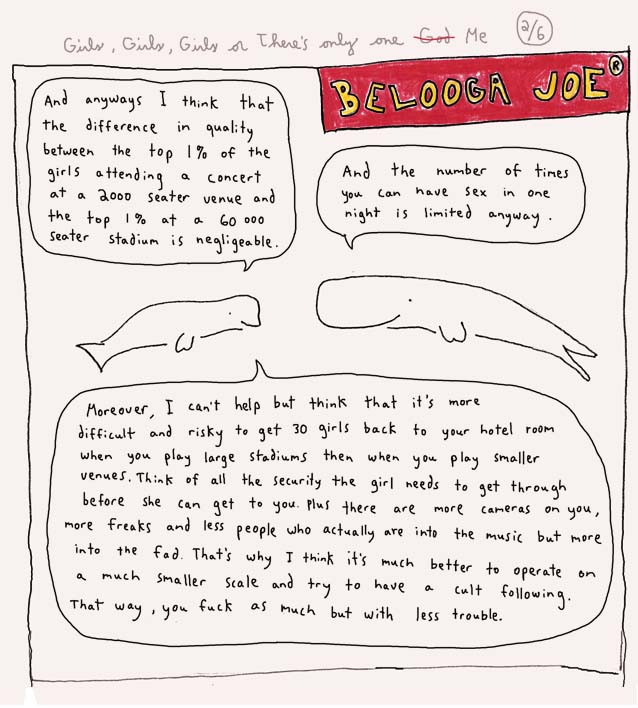 Girls, Girls, Girls or There's only one God Me
2/6
BELOOGA JOE®
And anyways I think that
the difference in quality
between the top 1% of the
girls attending a concert
at a 2000 seater venue and
the top 1% at a 60 000
seater stadium is negligeable.
And the number of times
you can have sex in one
night is limited anyway.
Moreover, I can't help but think that it's more
difficult and risky to get 30 girls back to your hotel room
when you play large stadiums then when you play smaller
venues. Think of all the security the girl needs to get through
before she can get to you. Plus there are more cameras on you,
more freaks and less people who actually are into the music but more
into the fad. That's why I think it's much better to operate on
a much smaller scale and try to have a cult following.
That way, you fuck as much but with less trouble.